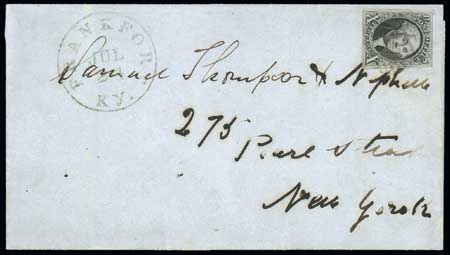 FRANKFORT
JUL
KY.
Samuel Thompson & Nephew
275
Pearl Street
New York